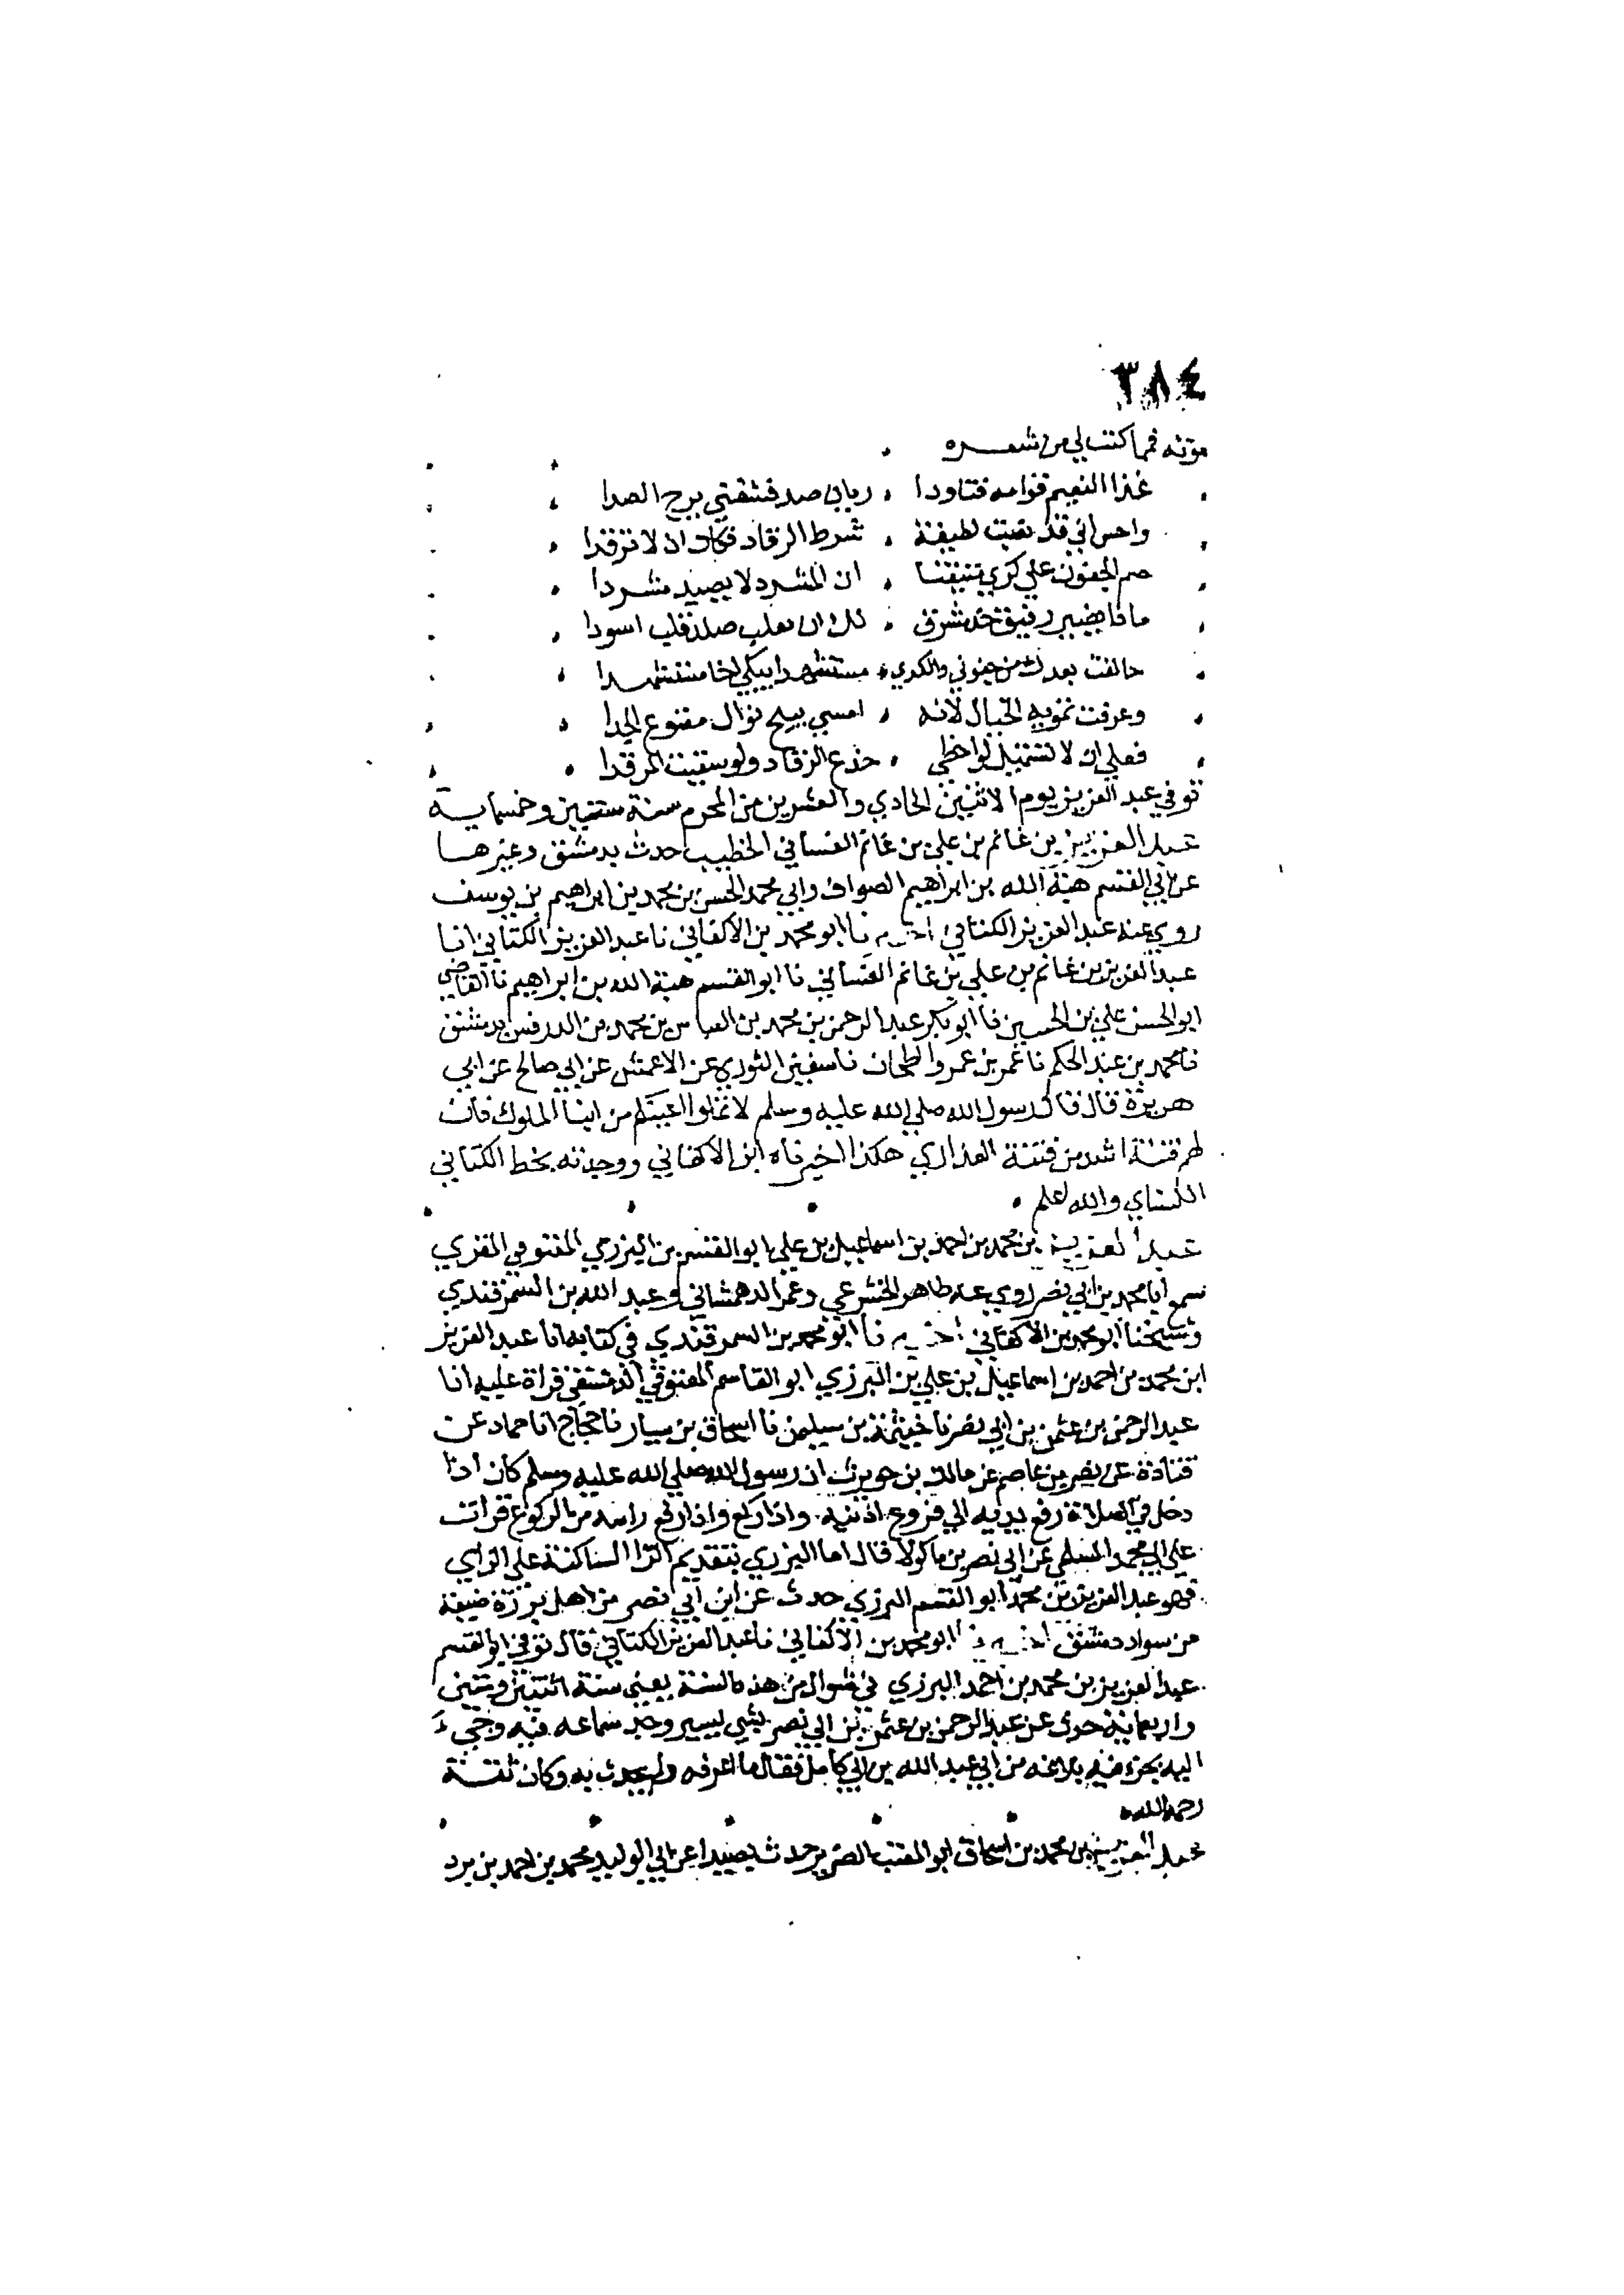 ٣٨٤
موته فمما كتب لي من شعره
غذا النعيم قوامه فتاودا . ريان صد فشقني برح الصدا
واحس اني قد بعثت لطيفة . شرط الرقاد فكاد ان لا ترقدا
ضم الجفون علي كري تثبيقنا . ان المشرد لا يصيد مشردا
ماذا يضير رقيق خد مشرق . لك ان بقلب صلد قلب اسودا
حالفت بعدك من جفوني والكري . مستشهدا يبكي اخا مستشهدا
وعرفت تمويه الخيال لانه . امسي يبيح نوال ممنوع الجدا
فعلي ان لا تستميل لواحظي . خدع الرقاد ولو سقيت المرقدا
توفي عبد العزيز يوم الاثنين الحادي والعشرين من المحرم سنة ستين وخمسماية
عبد العزيز بن غانم بن علي بن غانم الغساني الخطيب حدث بدمشق وغيرها
عن ابي القسم هبة الله بن ابراهيم الصواف وابي محمد الحسن بن محمد بن ابراهيم بن يوسف
روي عنه عبد العزيز الكتاني اخبرنا ابو محمد بن الاكفاني نا عبد العزيز الكتاني انا
عبد العزيز بن غانم بن علي بن غانم الغساني نا ابو القسم هبة الله بن ابراهيم نا القاضي
ابو الحسن علي بن الحسين نا ابو بكر عبد الرحمن بن محمد بن العباس بن محمد بن الدرفس بدمشق
نا محمد بن عبد الحكم نا عمر بن عمرو الطحان نا سفين الثوري عن الاعمش عن ابي صالح عن ابي
هريرة قال قال رسول الله صلي الله عليه وسلم لا تملوا اعينكم من ابنا الملوك فان
لهم فتنة اشد من فتنة العذاري هكذا اخبرناه ابن الاكفاني ووجدته بخط الكتاني
الكسائي والله اعلم
عبد العزيز بن محمد بن احمد بن اسماعيل بن علي ابو القسم بن اليزري المعتوقي المقري
سمع ابا محمد بن ابي نصر روي عنه طاهر الخشوعي وعمر الدهستاني وعبد الله بن السمرقندي
وشيخنا ابو محمد بن الاكفاني اخبرنا ابو محمد بن السمرقندي في كتابه انا عبد العزيز
ابن محمد بن احمد بن اسماعيل بن علي بن البرزي ابو القاسم المعتوقي الدمشقي قراة عليه انا
عبد الرحمن بن عثمن بن ابي نصر نا خيثمة بن سليمن نا اسحاق بن سيار نا حجاج انا حماد عن
قتادة عن نصر بن عاصم عن مالك بن حويرث ان رسول الله صلي الله عليه وسلم كان اذا
دخل في الصلاة رفع يديه الي فروع اذنيه واذا ركع واذا رفع راسه من الركوع قرات
علي ابي محمد السلمي عن ابي نصر بن ماكولا قال اما البرزي بتقديم الرا الساكنة علي الزاي
فهو عبد العزيز بن محمد ابو القسم البرزي حدث عن ابن ابي نصر من اهل برزة ضيعة
من سواد دمشق اخبرنا ابو محمد بن الاكفاني نا عبد العزيز الكتاني قال توفي ابو القسم
عبد العزيز بن محمد بن احمد البرزي في شوال من هذه السنة يعني سنة اثنتين وستين
واربعماية حدث عن عبد الرحمن بن عثمن بن ابي نصر بشي يسير وجد سماعه فيه وجيء
اليه بجزء فيه بلاغه من ابي عبد الله بن ابي كامل فقال ما اعرفه ولم يحدث به وكان ثقة
رحمه الله
عبد العزيز بن محمد بن اسحاق الضرير حدث بصيدا عن ابي الوليد محمد بن احمد بن برد